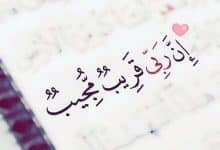 إِنَّ رَبِّيَ قَرِيبٌ مُّجِيبٌ